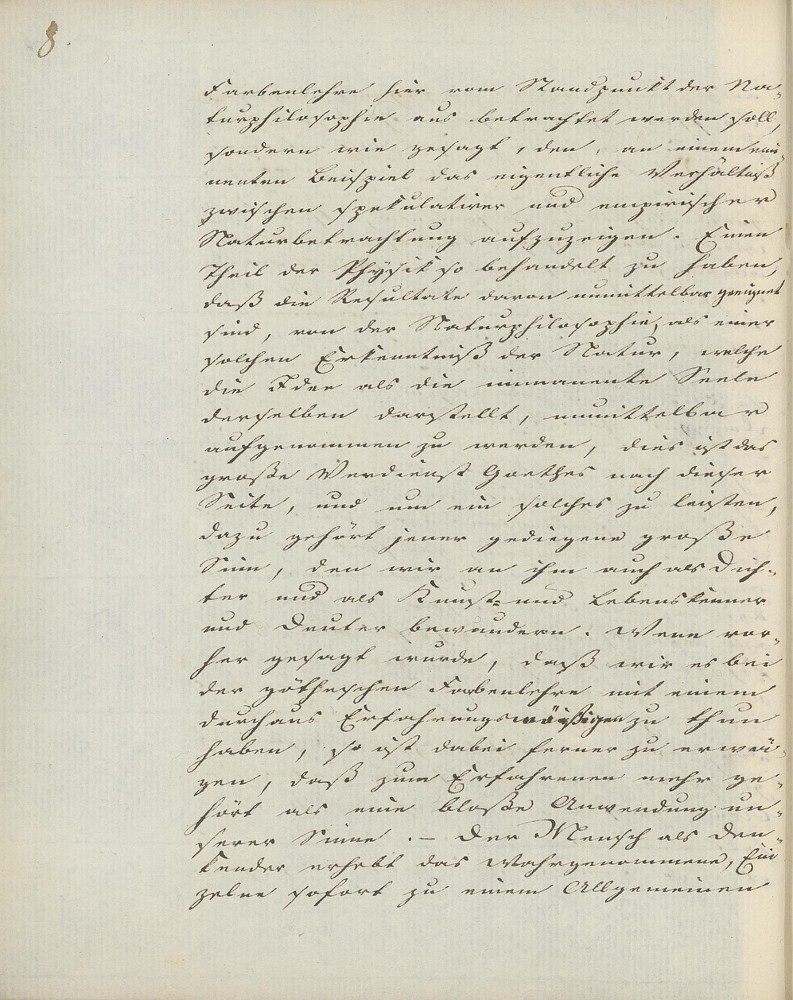 8.
Farbenlehre hier vom Standpunkt der Na-
turphilosophie aus betrachtet werden soll,
sondern wie gesagt, den, an einem emi-
nenten Beispiel das eigentliche Verhältniß
zwischen spekulativer und empirischer
Naturbetrachtung aufzuzeigen. Einen
Theil der Physik so behandelt zu haben,
daß die Resultate davon unmittelbar geeignet
sind, von der Naturphilosophie, als einer
solchen Erkenntniß der Natur, welche
die Idee als die immanente Seele
derselben darstellt, unmittelbar
aufgenommen zu werden, dies ist das
große Verdienst Goethes nach dieser
Seite, und um ein solches zu leisten,
dazu gehört jener gediegene große
Sinn, den wir an ihm auch als Dich-
ter und als Kunst- und Lebenskenner
und Deuter bewundern. Wenn vor-
her gesagt wurde, daß wir es bei
der götheschen Farbenlehre mit einem
durchaus Erfahrungsmäßigen zu thun
haben, so ist dabei ferner zu erwä-
gen, daß zum Erfahrenen mehr ge-
hört als eine bloße Anwendung un-
serer Sinne. – Der Mensch als Den-
kender erhebt das Wahrgenommene, Ein
zelne sofort zu einem Allgemeinen